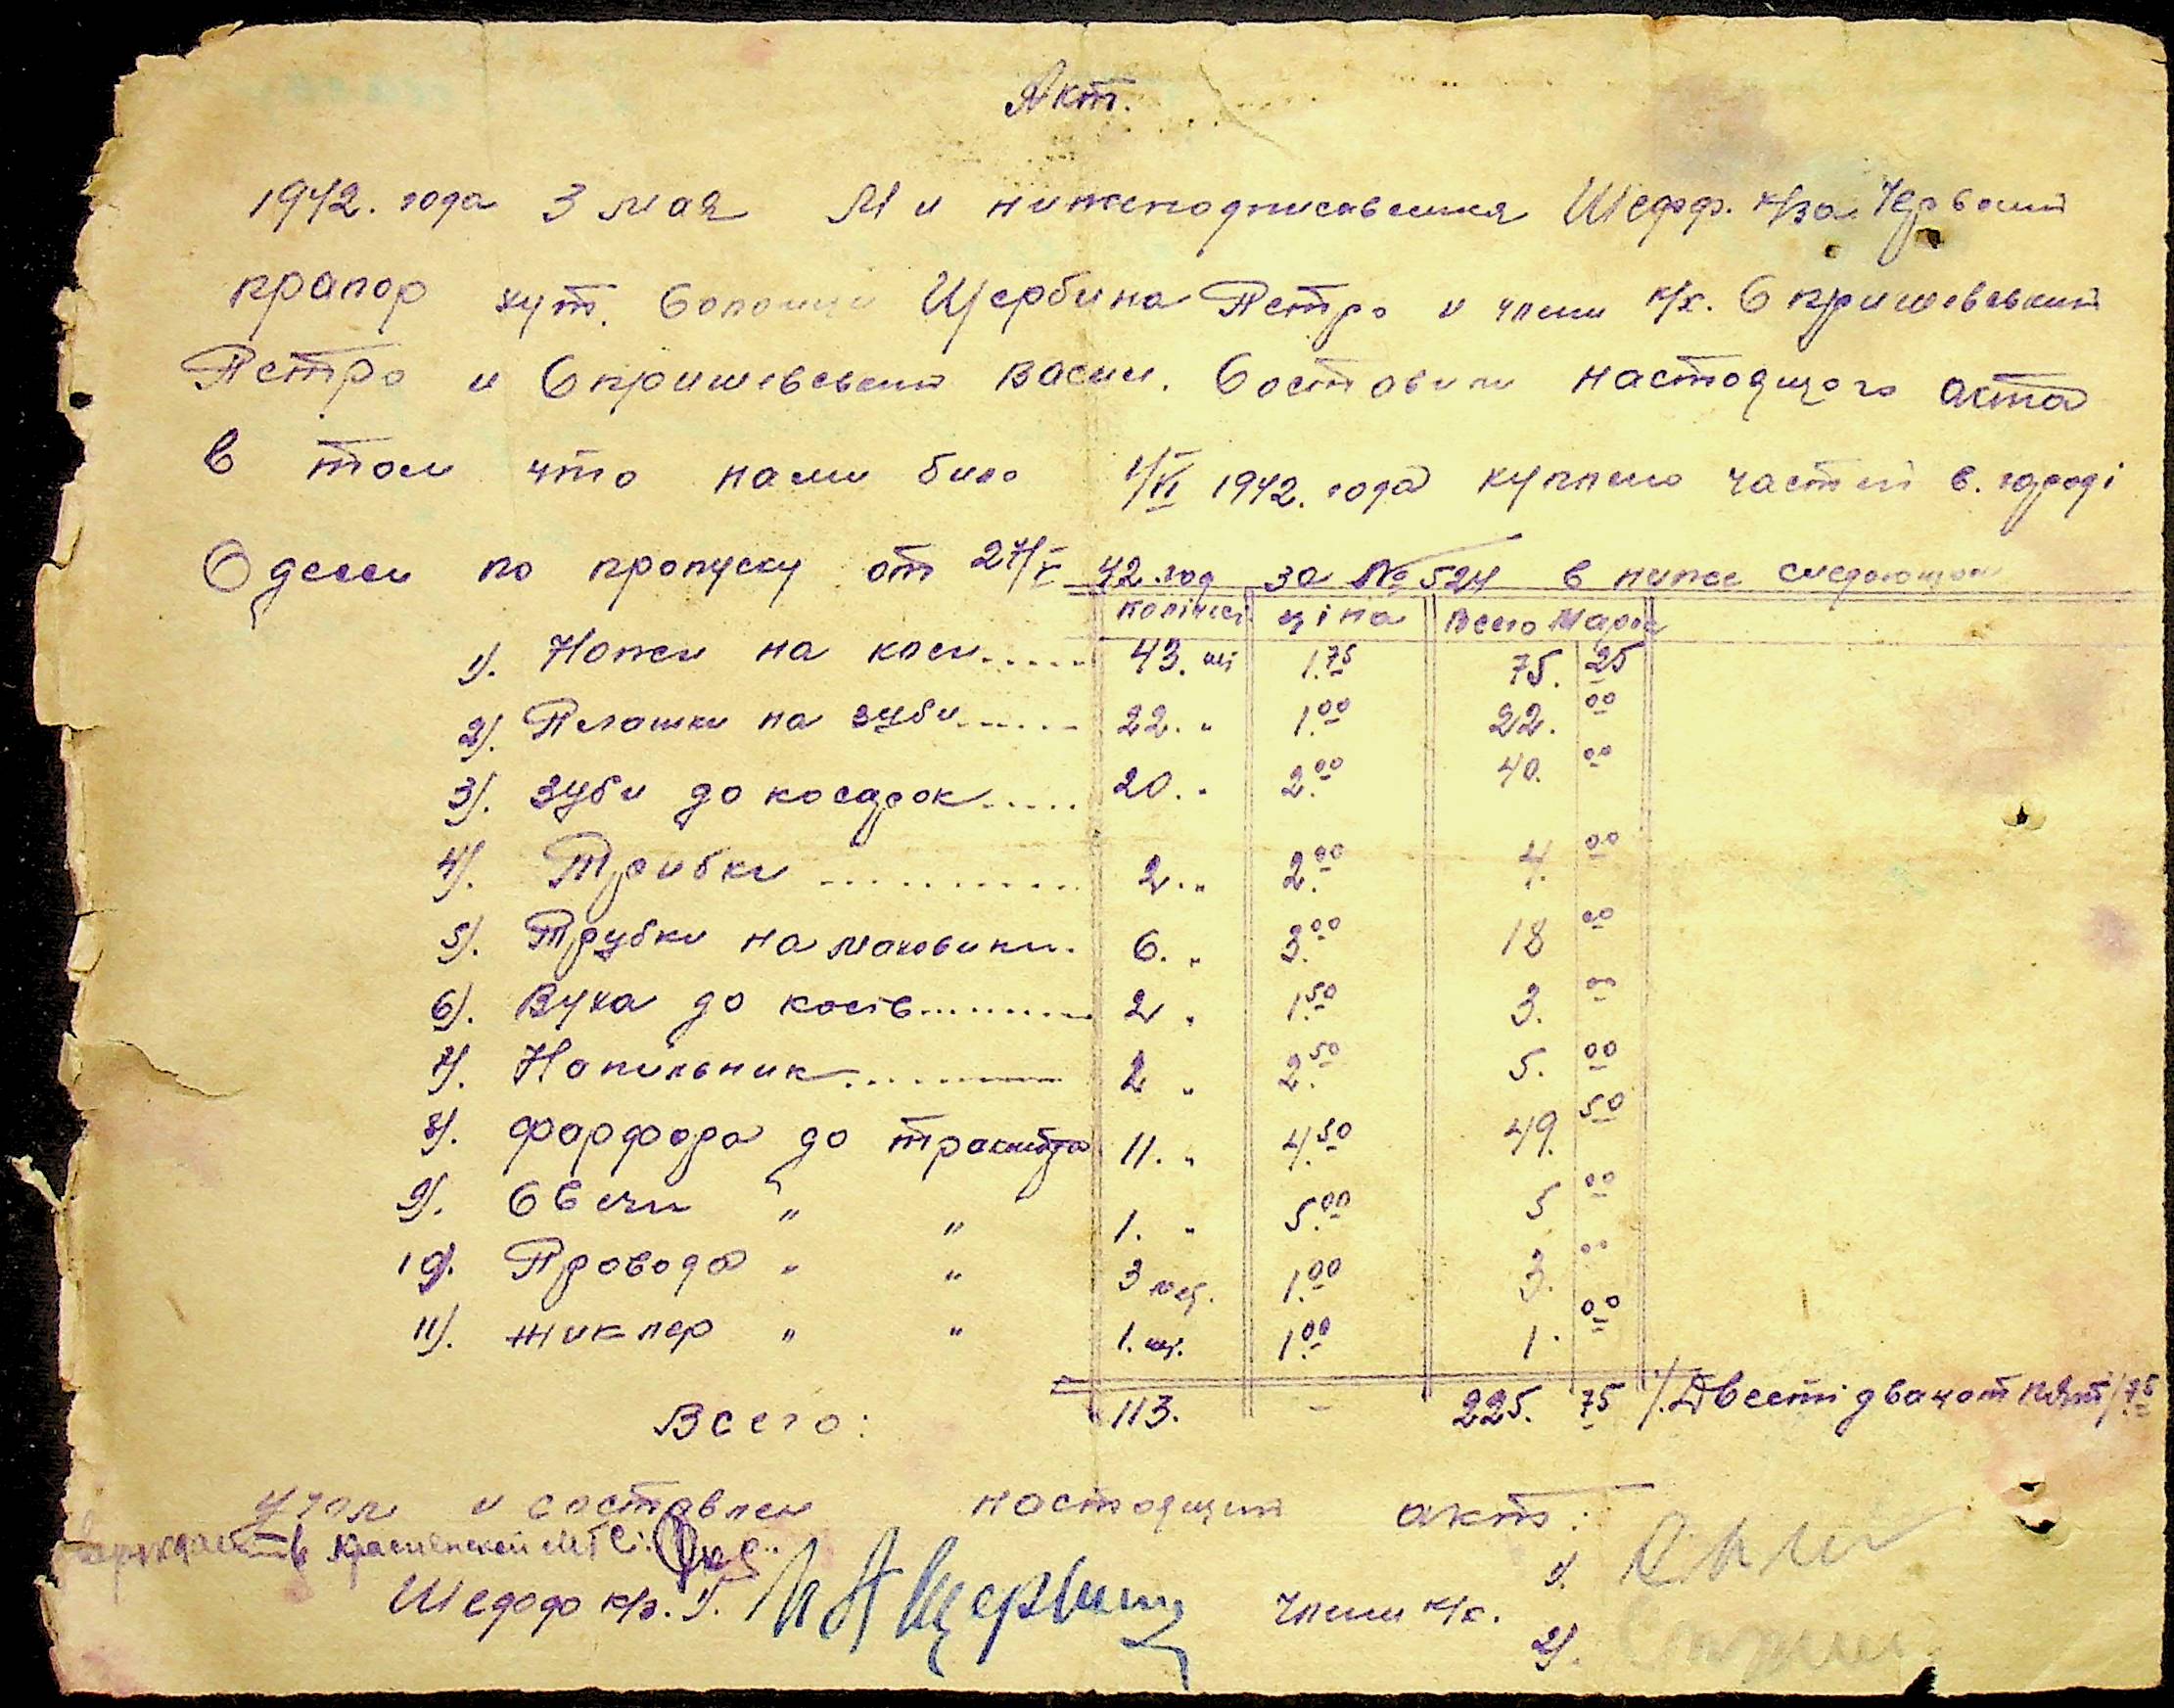 Акт.
1942. года 3 мая Ми нижеподписавшися Шефф. к/за Червоний
прапор хут. Щербина Петро и члени к/х. Скришевський
Петро и Скришевський Васил. Составили настоящого акта
в том что нами було 1/VI 1942. года куплено частей в. городі
Одесси по пропуску от 27/V 42 год за № 524 в ниже следующом
колічес. ціна Всего Марок
1). Ножи на коси..... 43. шт 1.75 75. 25
2). Плашки на зуби..... 22. " 1.00 22. 00
3). Зуби до косарок..... 20. " 2.00 40. 00
4). Трибки ............ 2. " 2.00 4. 00
5). Трубки на маховики. 6. " 3.00 18 00
6). Вуха до косів......... 2 " 1.50 3. 00
7). Напильник........... 2 " 2.50 5. 00
8). Фарфора до трактора 11. " 4.50 49. 50
9). Свечи " " 1. " 5.00 5 00
10). Провода " " 3 1.00 3. 00
11). жиклер " " 1. шт. 1.00 1. 00
Всего: 113. – 225. 75 /.Двесті двацот пять/75
и составлен настоящий акт:
Красилнской МТС:
Шефф к/з. 1). Щербина члени к/х. 1).
2).